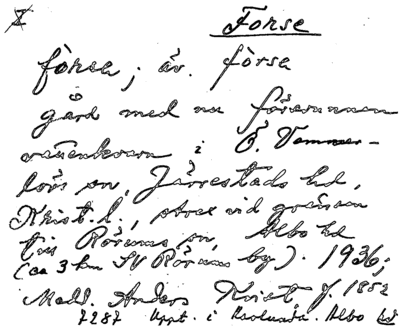 Forse
fòrsa; äv. fòrsa
gård med nu försvunnen
vattenkvarn i Ö. Vemmer-
lövs sn, Järrestads hd,
Krist. l., strax vid gränsen
till Rörums sn, Albo hd
(ca 3 km SV Rörums by). 1936;
Medd. Anders Kvist f. 1852
7287 Uppt. i Ravlunda. Albo hd